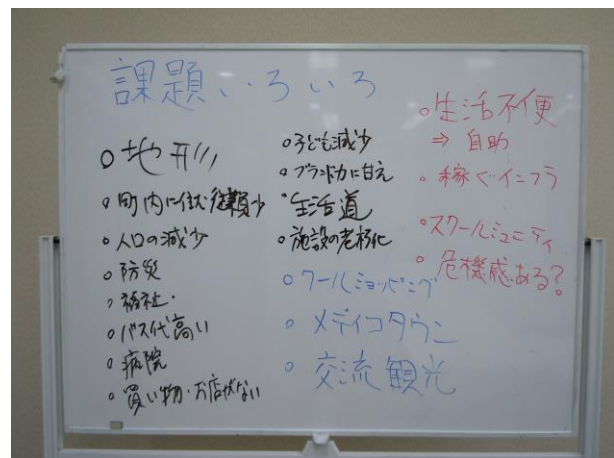 課題いろいろ
○地形
○町内に住む従業員少
○人口の減少
○防災
○福祉.
○バス代高い
○病院
○買い物・お店がない
○子ども減少
○ブランド力に甘え
○生活道
○施設の老朽化
○クールショッピング
○メディコタウン
○交流観光
○生活不便
⇒自助
○稼ぐインフラ
○スクールミュニティ
○危機感ある?